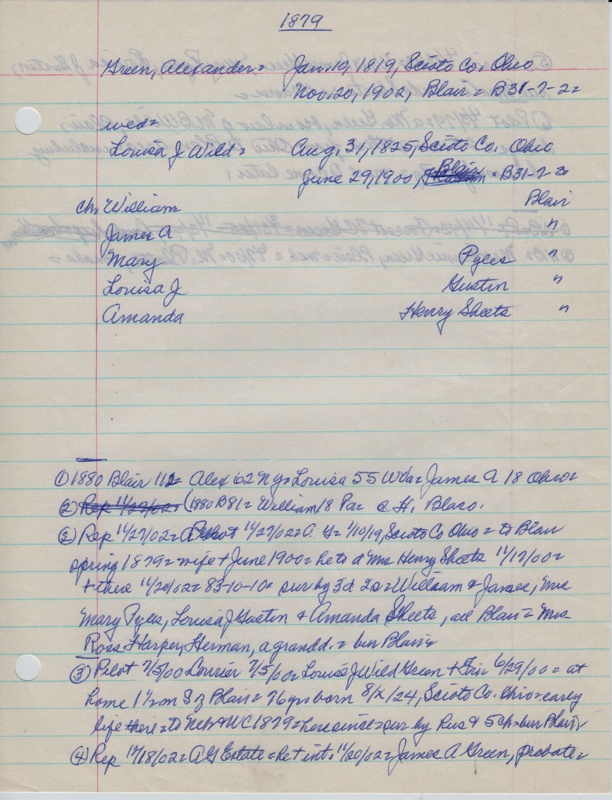 1879
Green, Alexander = Jan. 10, 1819, Scioto Co. Ohio
Nov. 20, 1902, Blair = B31-7-2=
wed=
Louisa J Wild = Aug. 31, 1825, Scioto Co. Ohio
June 29, 1900, Blair = B31-7-2=
Ch: William Blair
James A "
Mary Pyles "
Louisa J Gustin "
Amanda Henry Sheets "
① 1880 Blair 112 = Alex 62 Ny = Louisa 55 Wva = James A 18 Ohio =
② Rep 11/27/02 = (1880 B81 = William 18 Pa = @ H. Blaco.
② Rep 11/27/02 = Pilot 11/27/02 = A. G = 1/10/19, Scioto Co Ohio = to Blair
spring 1879 = wife + June 1900 = he to d Mrs Henry Sheets 11/17/00 =
+ there 11/20/02 = 83-10-10 = sur by 3d 2s = William & James, Mrs
Mary Pyles, Louisa J Gustin & Amanda Sheets, all Blair = Mrs
Ross Harper, Herman, a grandd. = bur Blair =
③ Pilot 7/5/00 Courier 7/5/00 = Louisa J Wild Green + Fri. 6/29/00 = at
home 1 1/2 m S of Blair = 76 yrs born 8/x/24, Scioto Co. Ohio = early
life there = to Neb & WC 1879 = here since = sur by Hus & 5 ch = bur Blair =
④ Rep 12/18/02 = A G Estate = Pet int. 11/20/02 = James A Green, probate =